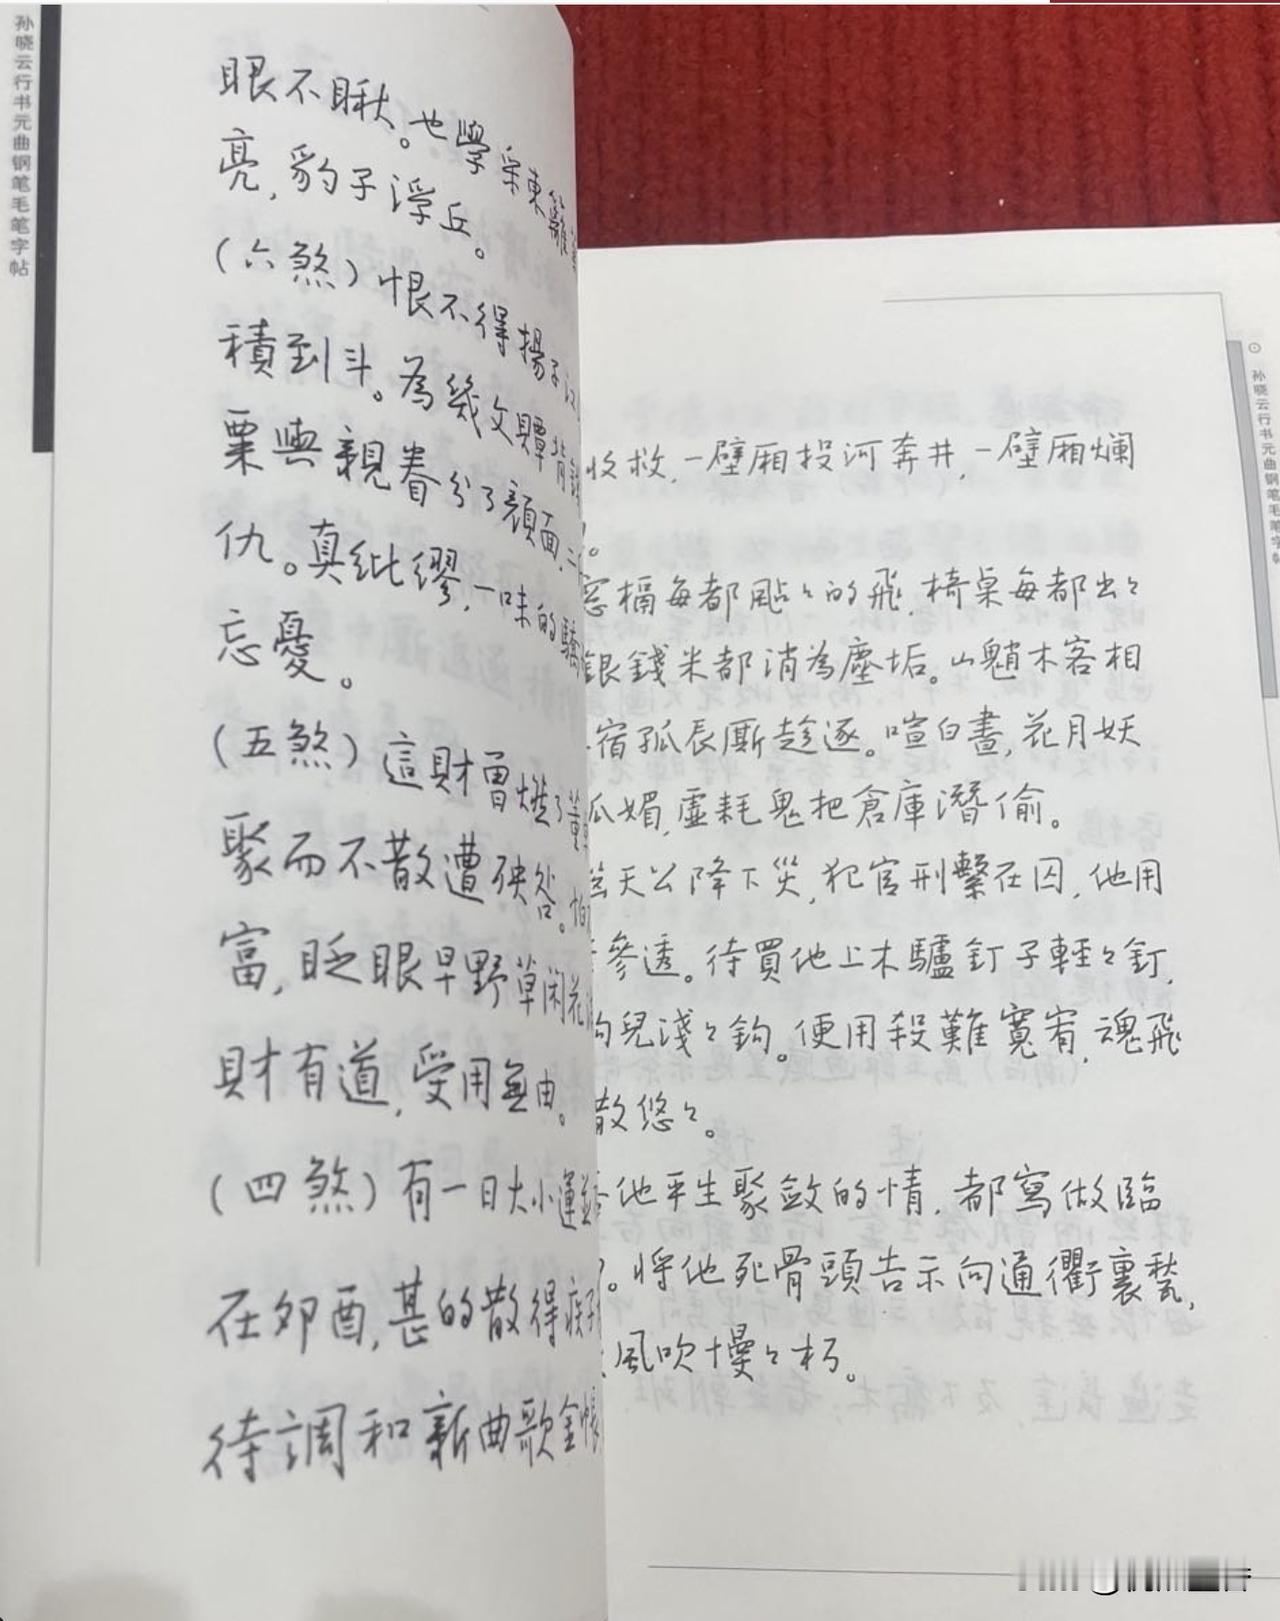 孙晓云行书元曲钢笔毛笔字帖
眼不瞅。也學采東籬
亮,豹子浮丘。
(六煞)恨不得揚子江
積到斗。為幾文贉背
粟與親眷分了顏面,二
仇。真紕繆,一味的驕
忘憂。
(五煞)這財曾燃了董
聚而不散遭殃咎。怕
富,眨眼早野草闲花
財有道,受用無由。
(四煞)有一日大小運並
在卯酉,甚的散得疾
待調和新曲歌金帳
收救,一壁厢投河奔井,一壁厢爛
。
窓槅每都颭々的飛,椅桌每都出々
銀錢米都消為塵垢。山魈木客相
宿孤辰厮趁逐。喧白晝,花月妖
狐媚,虚耗鬼把倉庫潛偷。
天公降下災,犯官刑繫在囚,他用
參透。待買他上木驢釘子輕々釘,
鈎兒淺々鈎。便用殺難寬宥,魂飛
散悠々。
他平生聚斂的情,都寫做臨
。將他死骨頭告示向通衢裏甃,
風吹慢々朽。
孙晓云行书元曲钢笔毛笔字帖